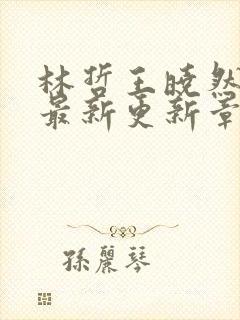 林哲王曉然
最新更新章
孫麗琴